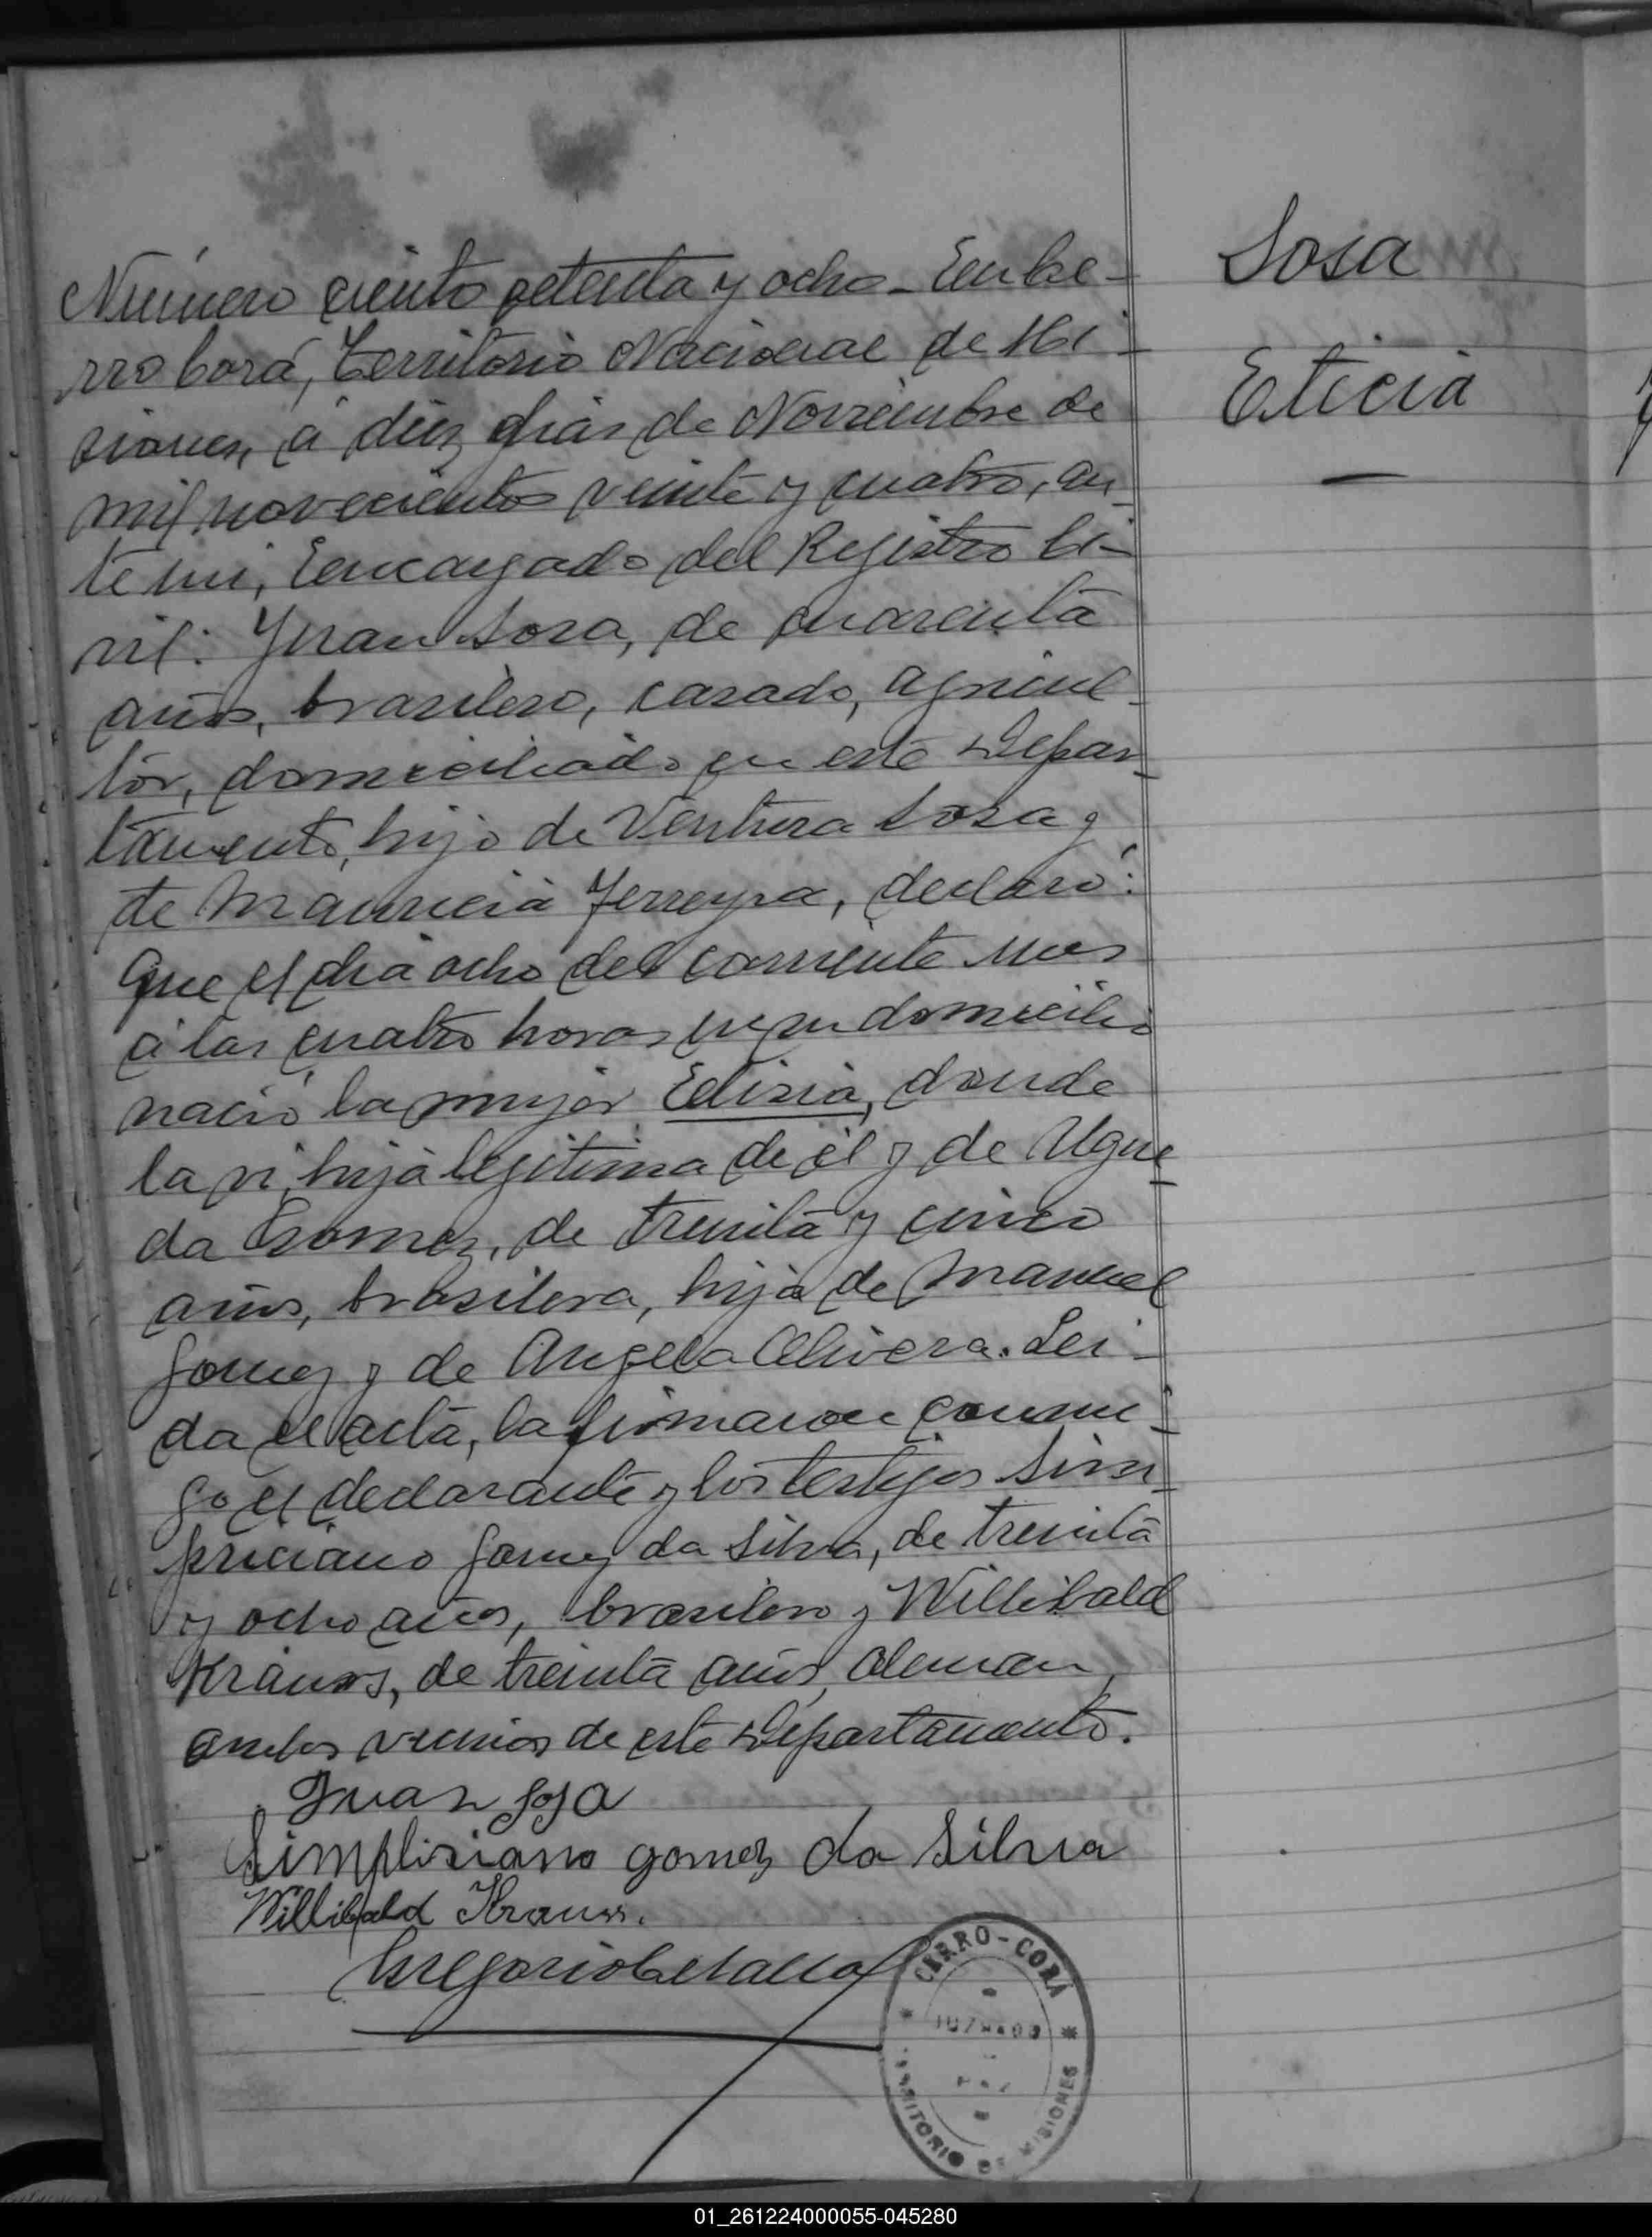 Sosa
Eticia
Número ciento setenta y ocho - En Ce-
rro Corá, Territorio Nacional de Mi-
siones, á diez dias de Noviembre de
mil novecientos veinte y cuatro, an-
te mi, Encargado del Registro Ci-
vil: Juan Sosa, de cuarenta
años, brasilero, casado, agricul-
tor, domiciliado en este Depar-
tamento, hijo de Ventura Sosa y
de Mauricia Ferreyra, declaró:
Que el dia ocho del corriente mes
á las cuatro horas en su domicilio
nació la mujer Edisia, donde
la vi, hija legitima de él y de Ague-
da Gomez, de treinta y cinco
años, brasilera, hija de Manuel
Gomez y de Angela Olivera. Lei-
da el acta, la firmaron conmi-
go el declarante y los testigos Sim-
priciano Gomez da Silva, de treinta
y ocho años, brasilero y Willibald
Krauss, de treinta años, aleman,
ambos vecinos de este Departamento.
Juan Sosa
Simplisiano gomez da Silva
Willibald Krauss.
Gregorio
CERRO-CORÁ
JUZGADO
DE
PAZ
TERRITORIO DE MISIONES
01_261224000055-045280